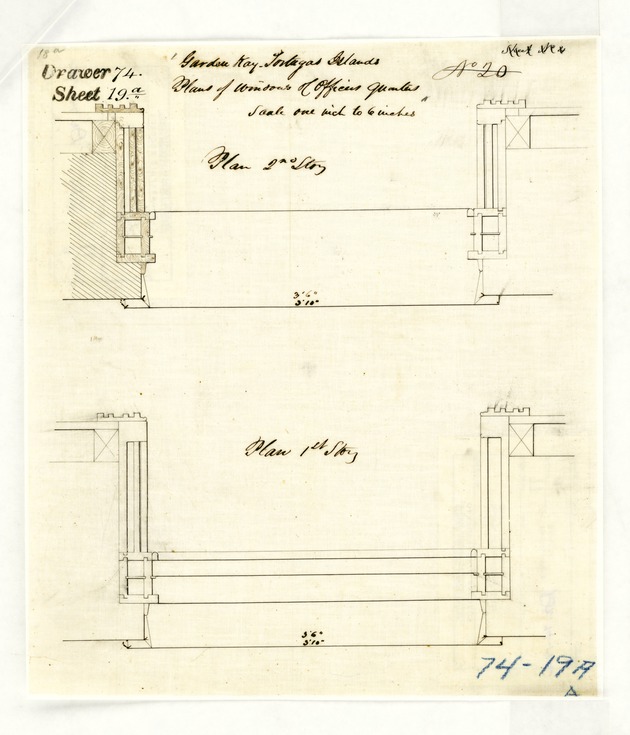 18 a
Drawer 74.
Sheet 19.a
"Garden Kay - Tortugas Islands
Plans of windows of Officers Quarters"
Scale one inch to 6 inches
No 20
Plan 2nd Story
3'6"
3'10"
Plan 1st Story
3'6"
3'10"
74-19A
A